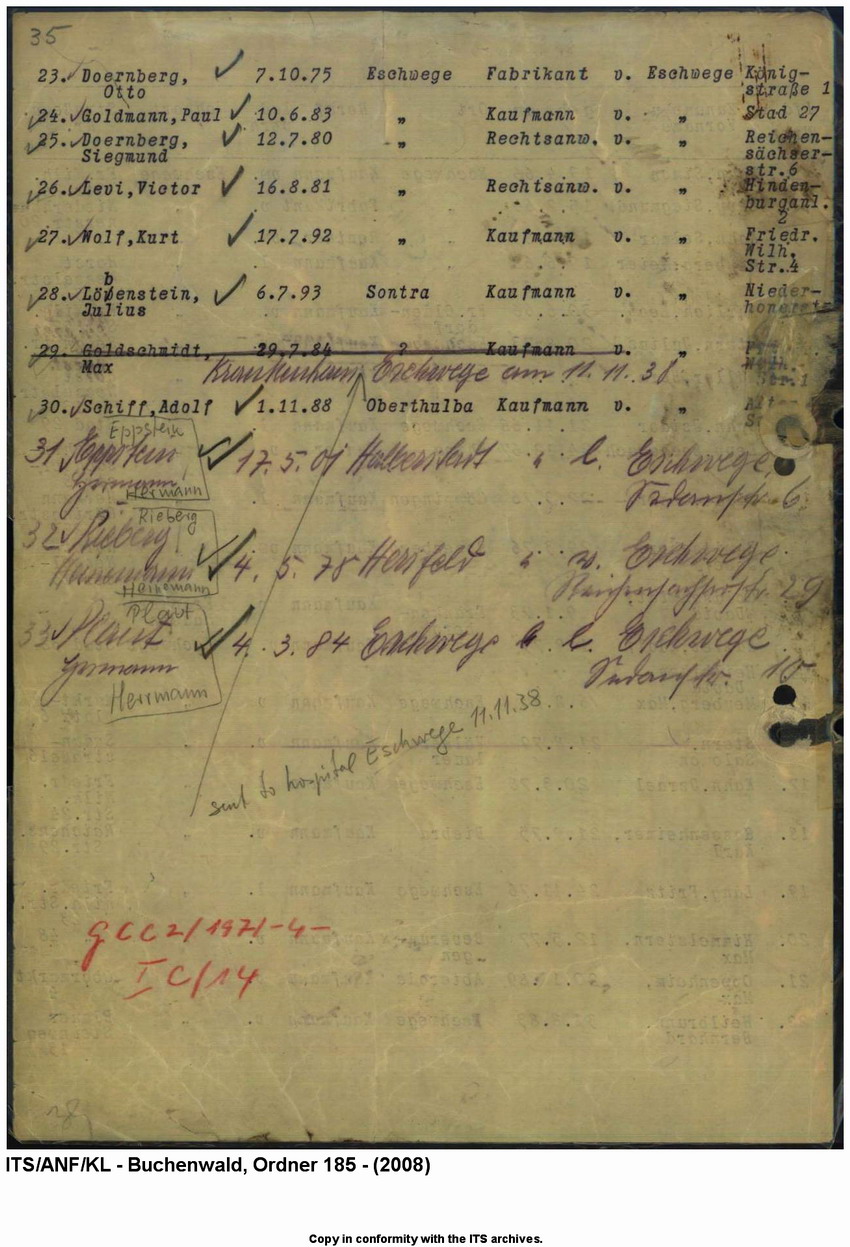 35
23. Doernberg, 7.10.75 Eschwege Fabrikant v. Eschwege König-
Otto straße 1
24. Goldmann, Paul 10.6.83 „ Kaufmann v. „ Stad 27
25. Doernberg, 12.7.80 „ Rechtsanw. v. „ Reichen-
Siegmund sächser-
str.6
26. Levi, Victor 16.8.81 „ Rechtsanw. v. „ Hinden-
burganl.
2
27. Wolf, Kurt 17.7.92 „ Kaufmann v. „ Friedr.
Wilh.
Str.4
b
28. Löwenstein, 6.7.93 Sontra Kaufmann v. „ Nieder-
Julius
29. Goldschmidt, 29.7.84 ? Kaufmann v. „
Max Krankenhaus Eschwege am 11.11.38 Str.1
30. Schiff, Adolf 1.11.88 Oberthulba Kaufmann v. „
Eppstein
31 Eppstein 17.5.01 Halberstadt „ Eschwege,
Hermann Hermann Sedanstr. 6
Rieberg
32 Rieberg 4.5.78 Hersfeld „ v. Eschwege
Heinemann Heinemann Reichensächserstr. 29
Plaut
33 Plaut 4.3.84 Eschwege Eschwege
Hermann Sedanstr. 10
Herrmann
sent to hospital Eschwege 11.11.38
GCC2/197/-4-
IC/14
28
ITS/ANF/KL - Buchenwald, Ordner 185 - (2008)
Copy in conformity with the ITS archives.